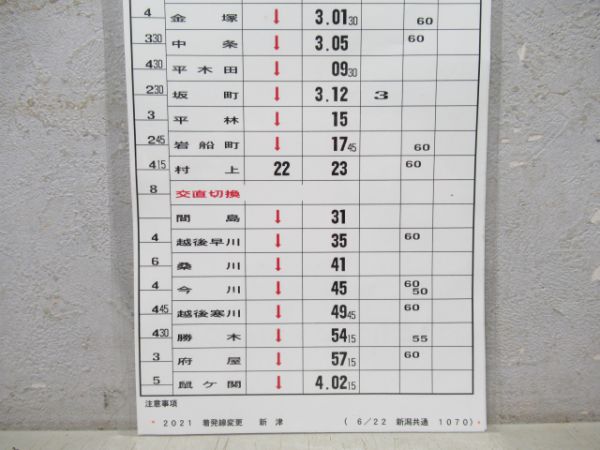 4 金塚 ↓ 3.01 30 60
3 30 中条 ↓ 3.05 60
4 30 平木田 ↓ 09 30
2 30 坂町 ↓ 3.12 3
3 平林 ↓ 15
2 45 岩船町 ↓ 17 45 60
4 15 村上 22 23 60
8 交直切換
間島 ↓ 31
4 越後早川 ↓ 35 60
6 桑川 ↓ 41
4 今川 ↓ 45 60 50
4 45 越後寒川 ↓ 49 45 60
4 30 勝木 ↓ 54 15 55
3 府屋 ↓ 57 15 60
5 鼠ケ関 ↓ 4.02 15
注意事項
* 2021 着発線変更 新津 ( 6/22 新潟共通 1070) *